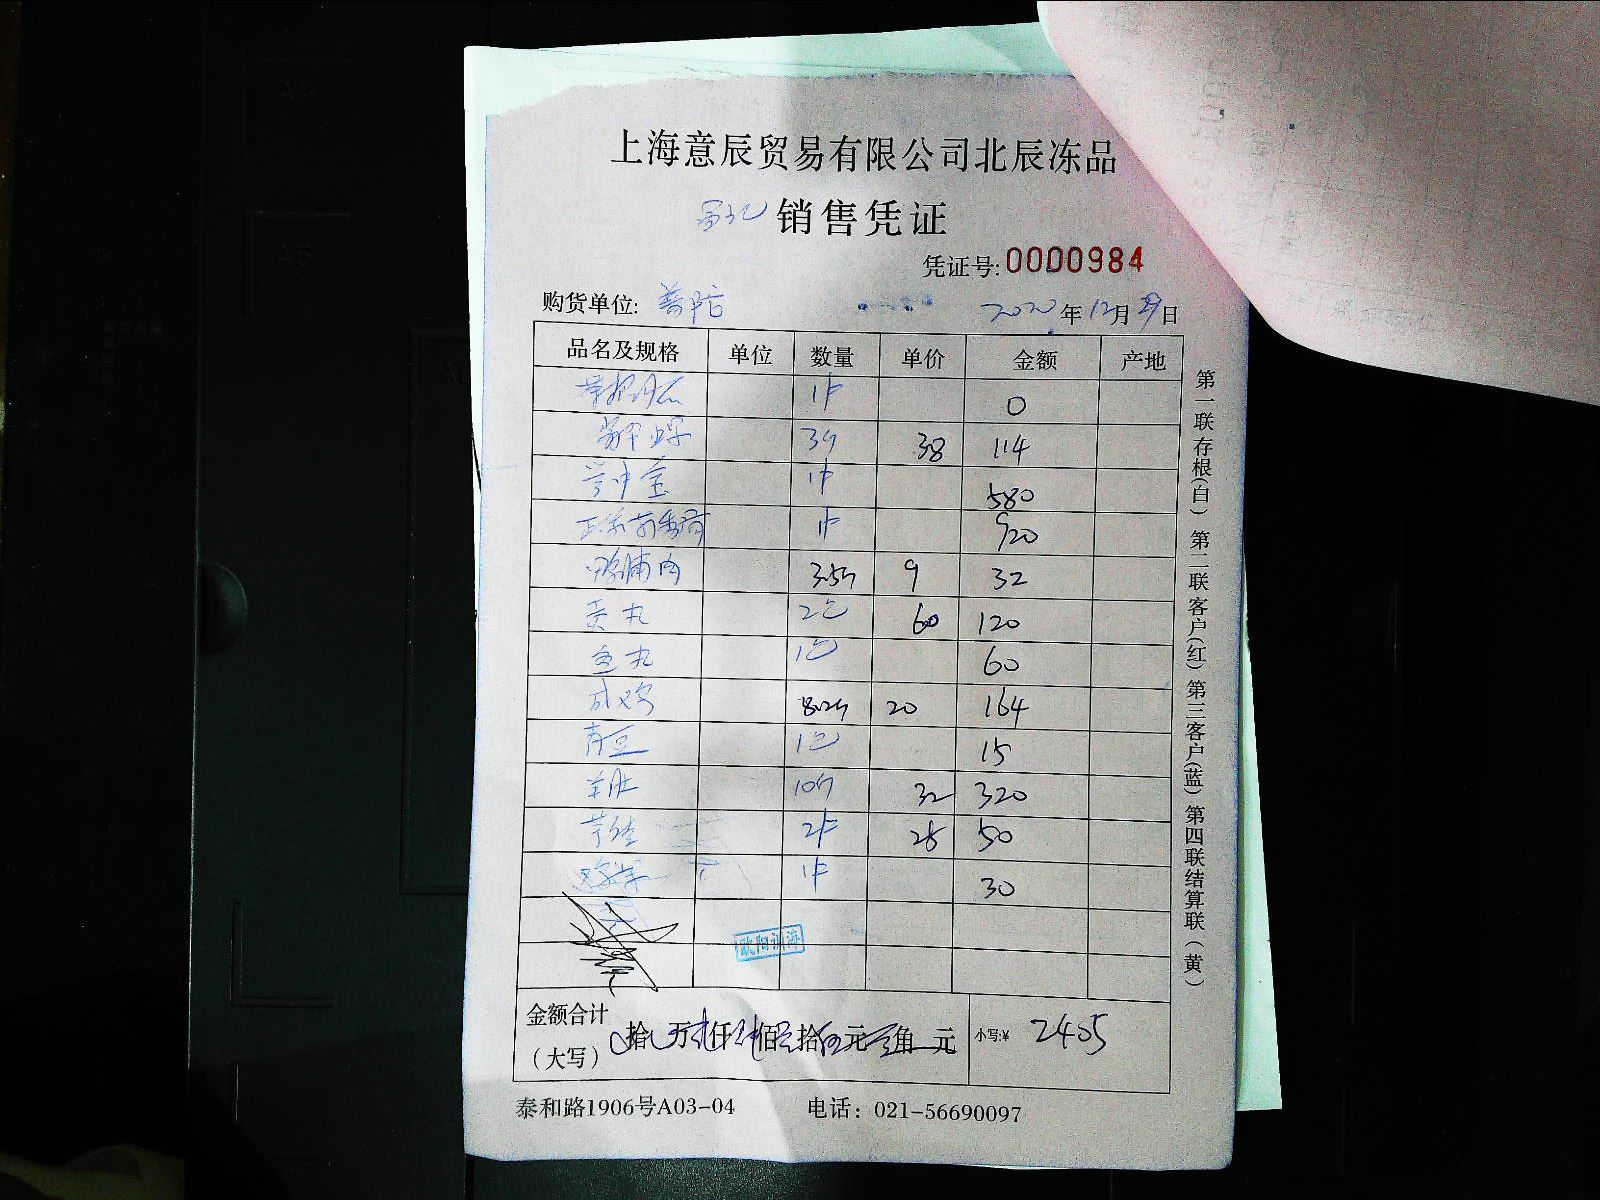 上海意辰贸易有限公司北辰冻品
销售凭证
凭证号:0000984
购货单位: 普陀 2020年12月29日
品名及规格 单位 数量 单价 金额 产地
1件 0
3斤 38 114
1件 580
1件 920
鸡脯肉 3.5斤 9 32
贡丸 2包 60 120
鱼丸 1包 60
8.2斤 20 164
青豆 1包 15
羊肚 10斤 32 320
2件 25 50
1件 30
欧阳
金额合计
(大写) 拾 万 仟 佰 拾 伍元 角 元 小写:¥ 2405
泰和路1906号A03-04 电话: 021-56690097
第一联存根(白) 第二联客户(红) 第三客户(蓝) 第四联结算联(黄)